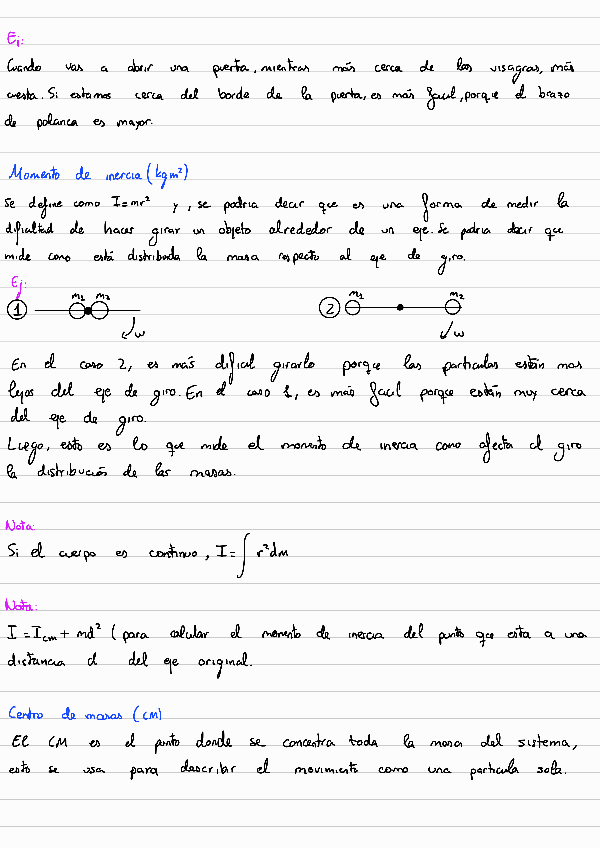 Ej:
Cuando vas a abrir una puerta, mientras más cerca de las visagras, más
cuesta. Si estamos cerca del borde de la puerta, es más facil, porque el brazo
de palanca es mayor.
Momento de inercia (kg m²)
Se define como I=mr² y, se podria decir que es una forma de medir la
dificultad de hacer girar un objeto alrededor de un eje. Se podria decir que
mide como está distribuida la masa respecto al eje de giro.
Ej:
① m₁ m₂ ω ② m₁ m₂ ω
En el caso 2, es más dificil girarlo porque las particulas están mas
lejos del eje de giro. En el caso 1, es más facil porque están muy cerca
del eje de giro.
Luego, esto es lo que mide el momento de inercia como afecta el giro
la distribución de las masas.
Nota:
Si el cuerpo es continuo, I = ∫ r² dm
Nota:
I = Icm + md² (para calcular el momento de inercia del punto que esta a una
distancia d del eje original.
Centro de masas (CM)
El CM es el punto donde se concentra toda la masa del sistema,
esto se usa para describir el movimiento como una particula sola.